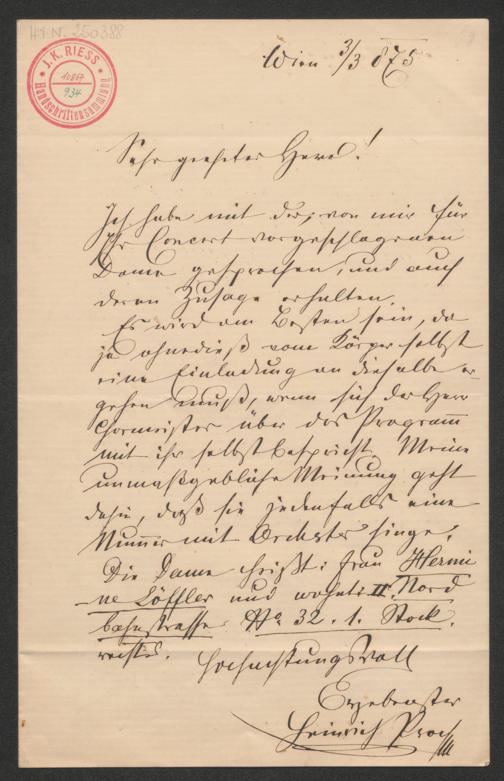 H.I.N. 250388
J. K. RIESS
10857
934
Handschriftensammlung
Wien 3/3 875
Sehr geehrter Herr!
Ich habe mit der, von mir für
Ihr Concert vorgeschlagenen
Dame gesprochen, und auch
deren Zusage erhalten.
Es wird am Besten sein, da
ja ohnedieß vom Körper selbst
eine Einladung an dieselbe er-
gehen muß, wenn sich der Herr
Chormeister über das Programm
mit ihr selbst bespricht. Meine
unmaßgebliche Meinung geht
dahin, daß sie jedenfalls eine
Numer mit Orchester singe.
Die Dame heißt: Frau Hermi
-ne Löffler und wohnt: II. Nord
bahnstrasse No 32. 1. Stock.
rechts.
Hochachtungsvoll
Ergebenster
Heinrich Proch